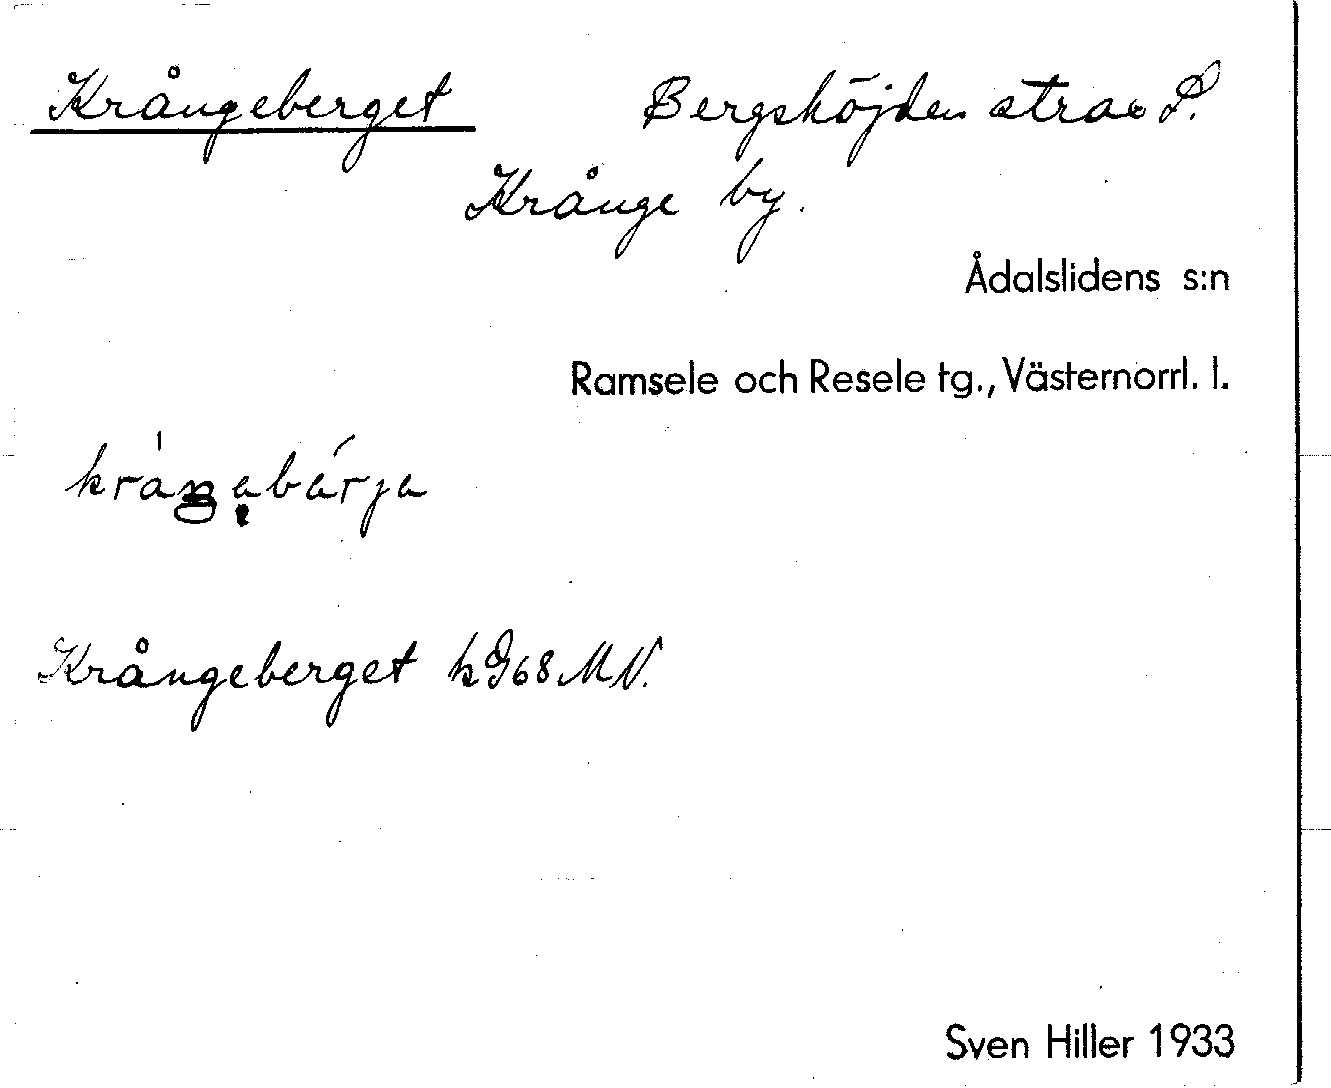 Krångeberget Bergshöjden strax S.
Krånge by.
Ådalslidens s:n
Ramsele och Resele tg., Västernorrl. l.
Krångeberget kG68MV.
Sven Hiller 1933